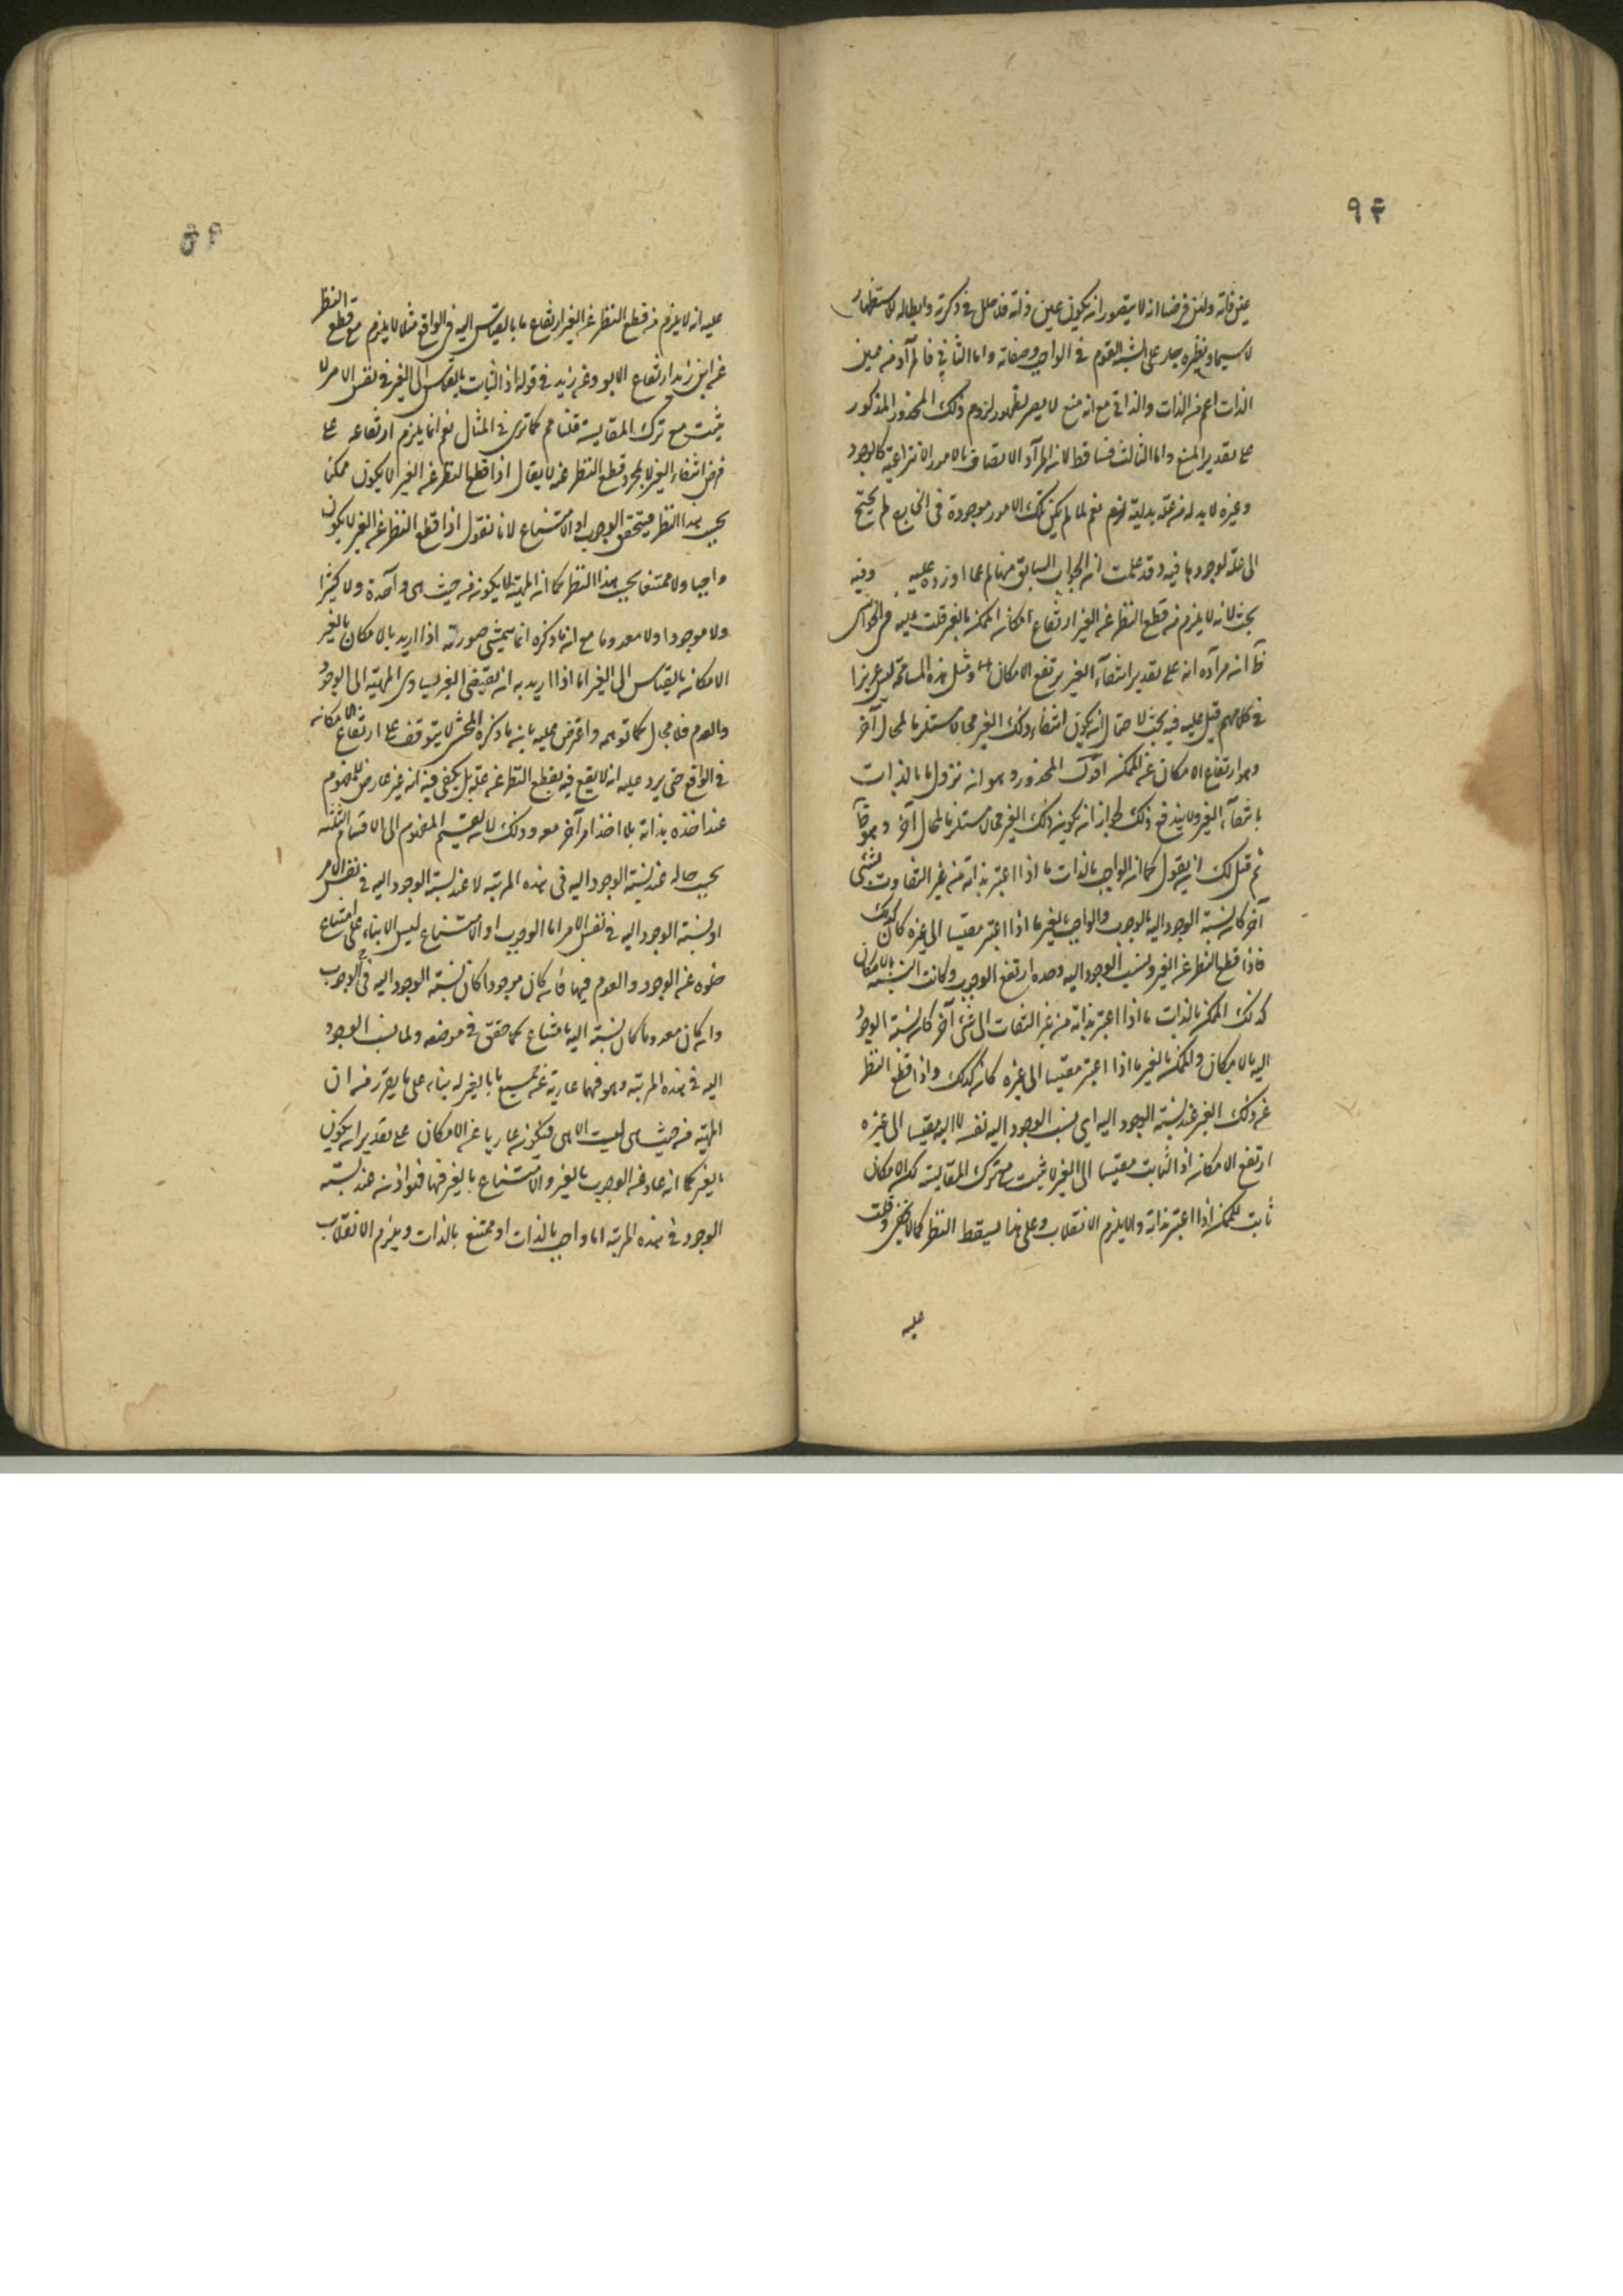 ٩۴
عين ذاته ولئن فرضنا انه لا يتصور انه يكون عين ذاته فلا خلل في ذكره وابطاله للاستظهار
لا سيما ونظيره على القوم في الواجب وصفاته واما الثاني فالمراد من عين
الذات اعم من الذات والذاتي مع انه منع لا يضر لظهور لزوم ذلك المحذور المذكور
على تقدير المنع واما الثالث فساقط لان المراد الاتصاف بالامور الانتزاعية كالوجود
وغيره لا بد له من علة بديهة نعم لما لم يكن تلك الامور موجودة في الخارج لم يحتج
الى علة لوجودها فيه وقد علمت ان الجواب السابق منها لم عما اورده عليه وفيه
بحث لانه لا يلزم من قطع النظر عن الغير ارتفاع امكان الممكن بالغير قلت عليه في الحواشي
ظ انه مراده انه على تقدير انتفاء الغير يرتفع الامكان ومثل هذه المسامحة ليس عزيزا
في كلامهم قيل عليه فيه بحث لاحتمال ان يكون انتفاء ذلك الغير محالا مستلزما لمحال آخر
وهو ارتفاع الامكان عن الممكن اقول المحذور هو انه نزول ما بالذات
بانتفاء الغير ولا يندفع ذلك لجواز ان يكون ذلك الغير محالا مستلزما لمحال آخر وهو
ثم قيل لك ان يقول كما ان الواجب بالذات ما اذا اعتبر بذاته من غير التفات لشئ
آخر كان نسبة الوجود اليه بالوجوب والواجب بالغير ما اذا اعتبر مقيسا الى غيره كان كذلك
فاذا قطع النظر عن الغير ونسب الوجود اليه وحده ارتفع الوجوب وكانت النسبة بالامكان
كذلك الممكن بالذات ما اذا اعتبر بذاته من غير التفات الى شئ آخر كان نسبة الوجود
اليه بالامكان والممكن بالغير ما اذا اعتبر مقيسا الى غيره كان كذلك واذا قطع النظر
عن ذلك الغير عند نسبة الوجود اليه اي نسب الوجود اليه نفسه لا اليه مقيسا الى غيره
ارتفع الامكان اذ الثابت مقيسا الى الغير لا يثبت مع ترك المقايسة لكن الامكان
ثابت للممكن اذا اعتبر بذاته والا يلزم الانقلاب وعلى هذا يسقط النظر كما لا يخفى وقلت
عليه
عليه انه لا يلزم من قطع النظر عن الغير ارتفاع ما بالقياس اليه في الواقع مثلا لا يلزم من قطع النظر
عن ابن زيد ارتفاع الابوة عن زيد في قوله اذ الثابت بالقياس الى الغير في نفس الامر لا
يثبت مع ترك المقايسة قلنا مم كما ترى في المثال نعم انما يلزم ارتفاعه على
فرض انتفاء الغير لا بمجرد قطع النظر عنه لا يقال اذا قطع النظر عن الغير لا يكون ممكنا
بحسب هذا النظر فيتحقق الوجوب او الامتناع لانا نقول اذا قطع النظر عن الغير لا يكون
واجبا ولا ممتنعا بحسب هذا النظر كما ان المهية لا يكون من حيث هى واحدة ولا كثيرا
ولا موجودا ولا معدوما مع انه ما ذكره انما يتمشى صورته اذا اريد بالامكان بالغير
الامكان بالقياس الى الغير اما اذا اريد به ان يقتضى الغير تساوى المهية الى الوجود
والعدم فلا مجال كما توهمه واعترض عليه بان ما ذكره المحشى لا يتوقف على ارتفاع الامكان
في الواقع حتى يرد عليه انه لا يقع فيه بقطع النظر عن علته بل يكفى فيه انه غير عارض للمفهوم
عند اخذه بذاته بلا اخذ امر آخر معه وذلك لان تقسيم المفهوم الى الاقسام الثلثة
بحسب حاله عند نسبة الوجود اليه فى هذه المرتبة لا عند نسبة الوجود اليه في نفس الامر
اذ نسبة الوجود اليه في نفس الامر اما الوجوب او الامتناع ليس الا بناء على امتناع
خلوه عن الوجود والعدم فيها فانه كان موجودا كان نسبة الوجود اليه في الوجوب
وان كان معدوما كان نسبته اليه بامتناع كما حقق في موضعه ولما نسب الوجود
اليه في هذه المرتبة وهو فيها عارية عن جميع ما بالغير له بناء على ما يقرر من ان
المهية من حيث هى ليست الا هى فيكون عاريا عن الامكان على تقدير ان يكون
بالغير كما انه عار عن الوجوب بالغير والامتناع بالغير فيها فهو اذن عند نسبة
الوجود في هذه المرتبة اما واجب بالذات او ممتنع بالذات ويلزم الانقلاب